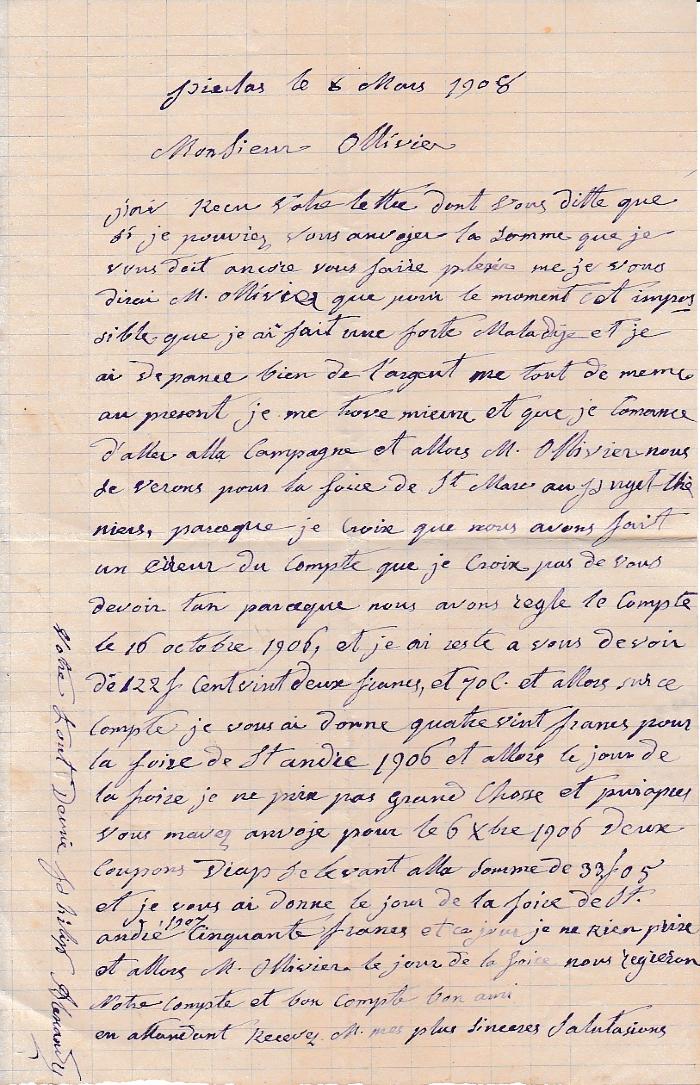 pierlas le 8 Mars 1908
Monsieur Ollivier
j'ai Recu Votre lettre dont vous ditte que
si je pouviez vous anvojer la somme que je
vous doit ancore vous faire plesir me je vous
dirai M. Ollivier que pour le moment cet impos
sible que je ai fait une forte Maladije et je
ai Depance bien de l'argent me tout de meme
au present je me trove mieux et que je Comance
d'aller alla Campagne et allors M. Ollivier nous
se verons pour la foire de St Marc au puget the
niers, parceque je Croix que nous avons fait
un erreur du Compte que je Croix pas de vous
devoir tan parceque nous avons regle le Compte
le 16 octobre 1906, et je ai reste a vous devoir
de 122 f Centvint deux francs, et 70 C. et allors sur ce
Compte je vous ai donne quatrevint francs pour
la foire de St andre 1906 et allors le jour de
la foire je ne prix pas grand Chosse et puiapres
vous mavez anvoje pour le 6 Xbre 1906 Deux
Coupons Drap selevant alla somme de 33 f 05
et je vous ai donne le jour de la foire de St.
andré 1907 Cinquante francs et ce jour je ne Rien prix
et allors M. Ollivier le jour de la foire nous regleron
Notre Compte et bon Compte bon ami
en attandant Recevez M. mes plus sinceres Salutasions
Votre tout Devoue philip Alexandre